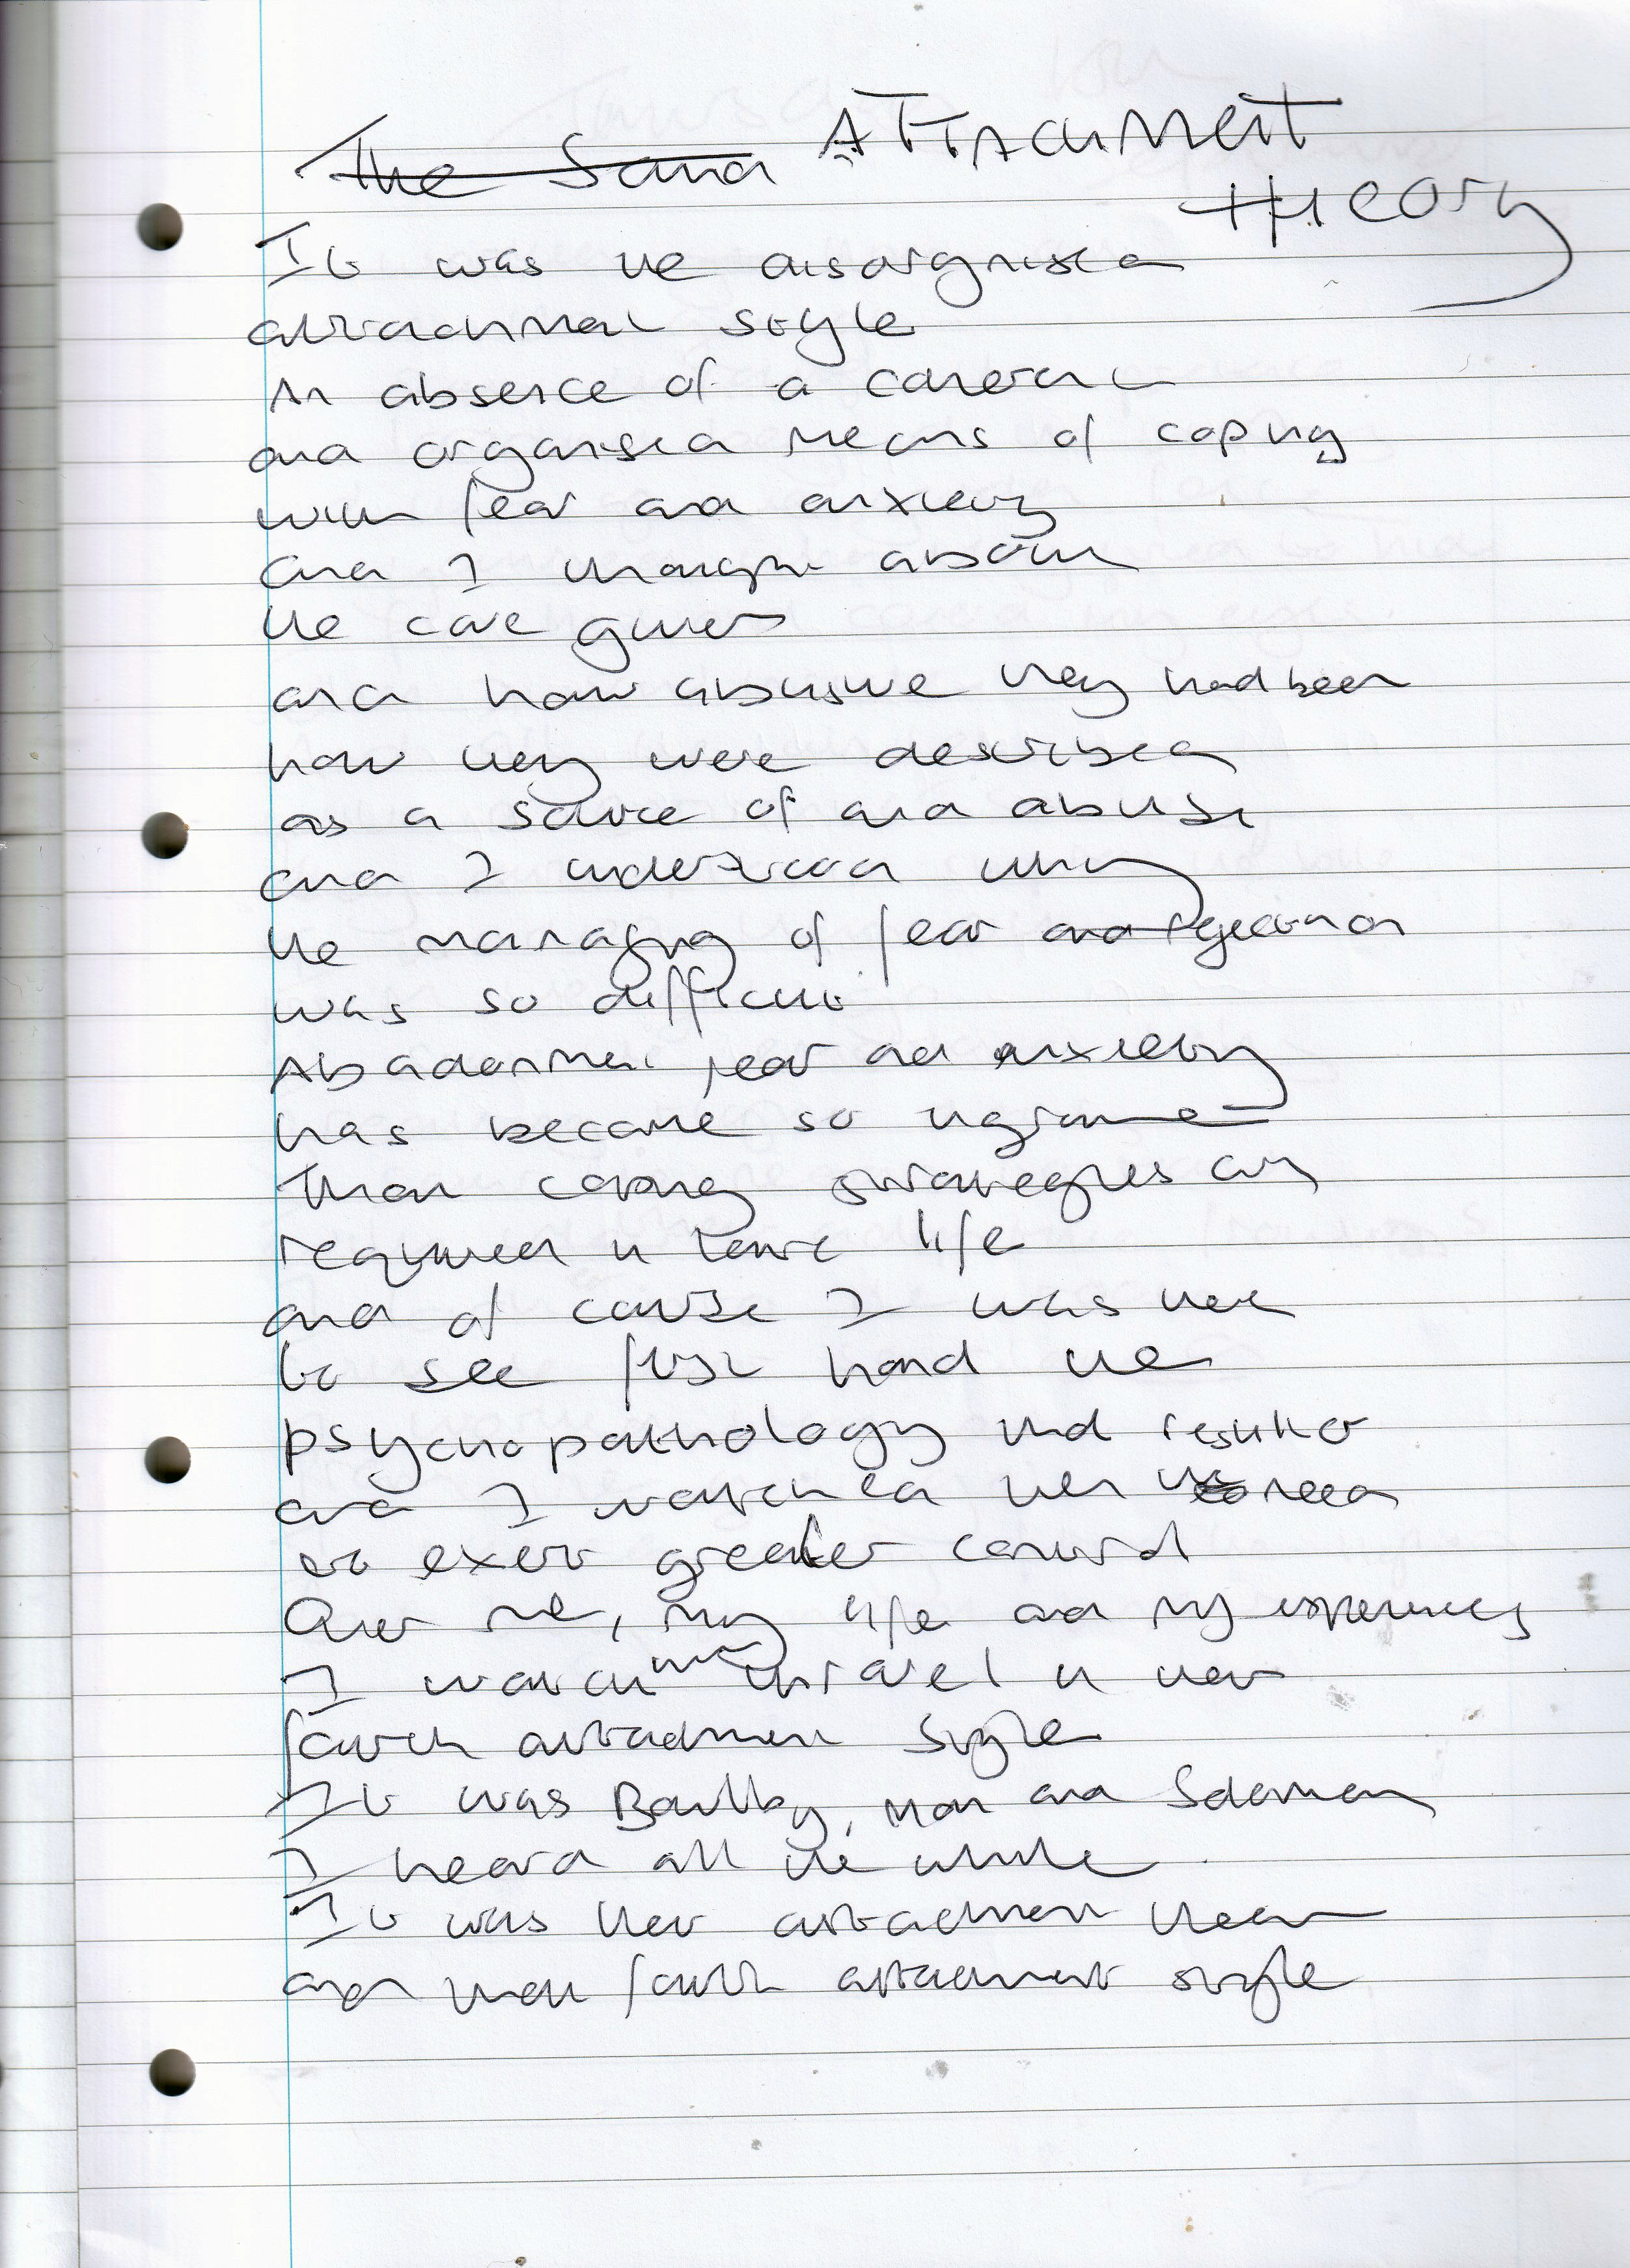 The Sand ATTACHMENT
THEORY
It was the disorganised
attachment style
An absence of a coherent
and organised means of coping
with fear and anxiety
and I thought about
the care givers
and how abusive they had been
how they were described
as a source of and abuse
and I understood why
the managing of fear and rejection
was so difficult
Abandonment fear and anxiety
has became so ingrained
Than coping strategies
required in later life
and of course I was there
to see first hand the
psychopathology that resulted
and I watched her need
to exert greater control
Over me, my life and my experiences
I watch unravel in her
fourth attachment style
It was Bowlby, Main and Soloman
I heard all the while
It was her attachment
and that fourth attachment style